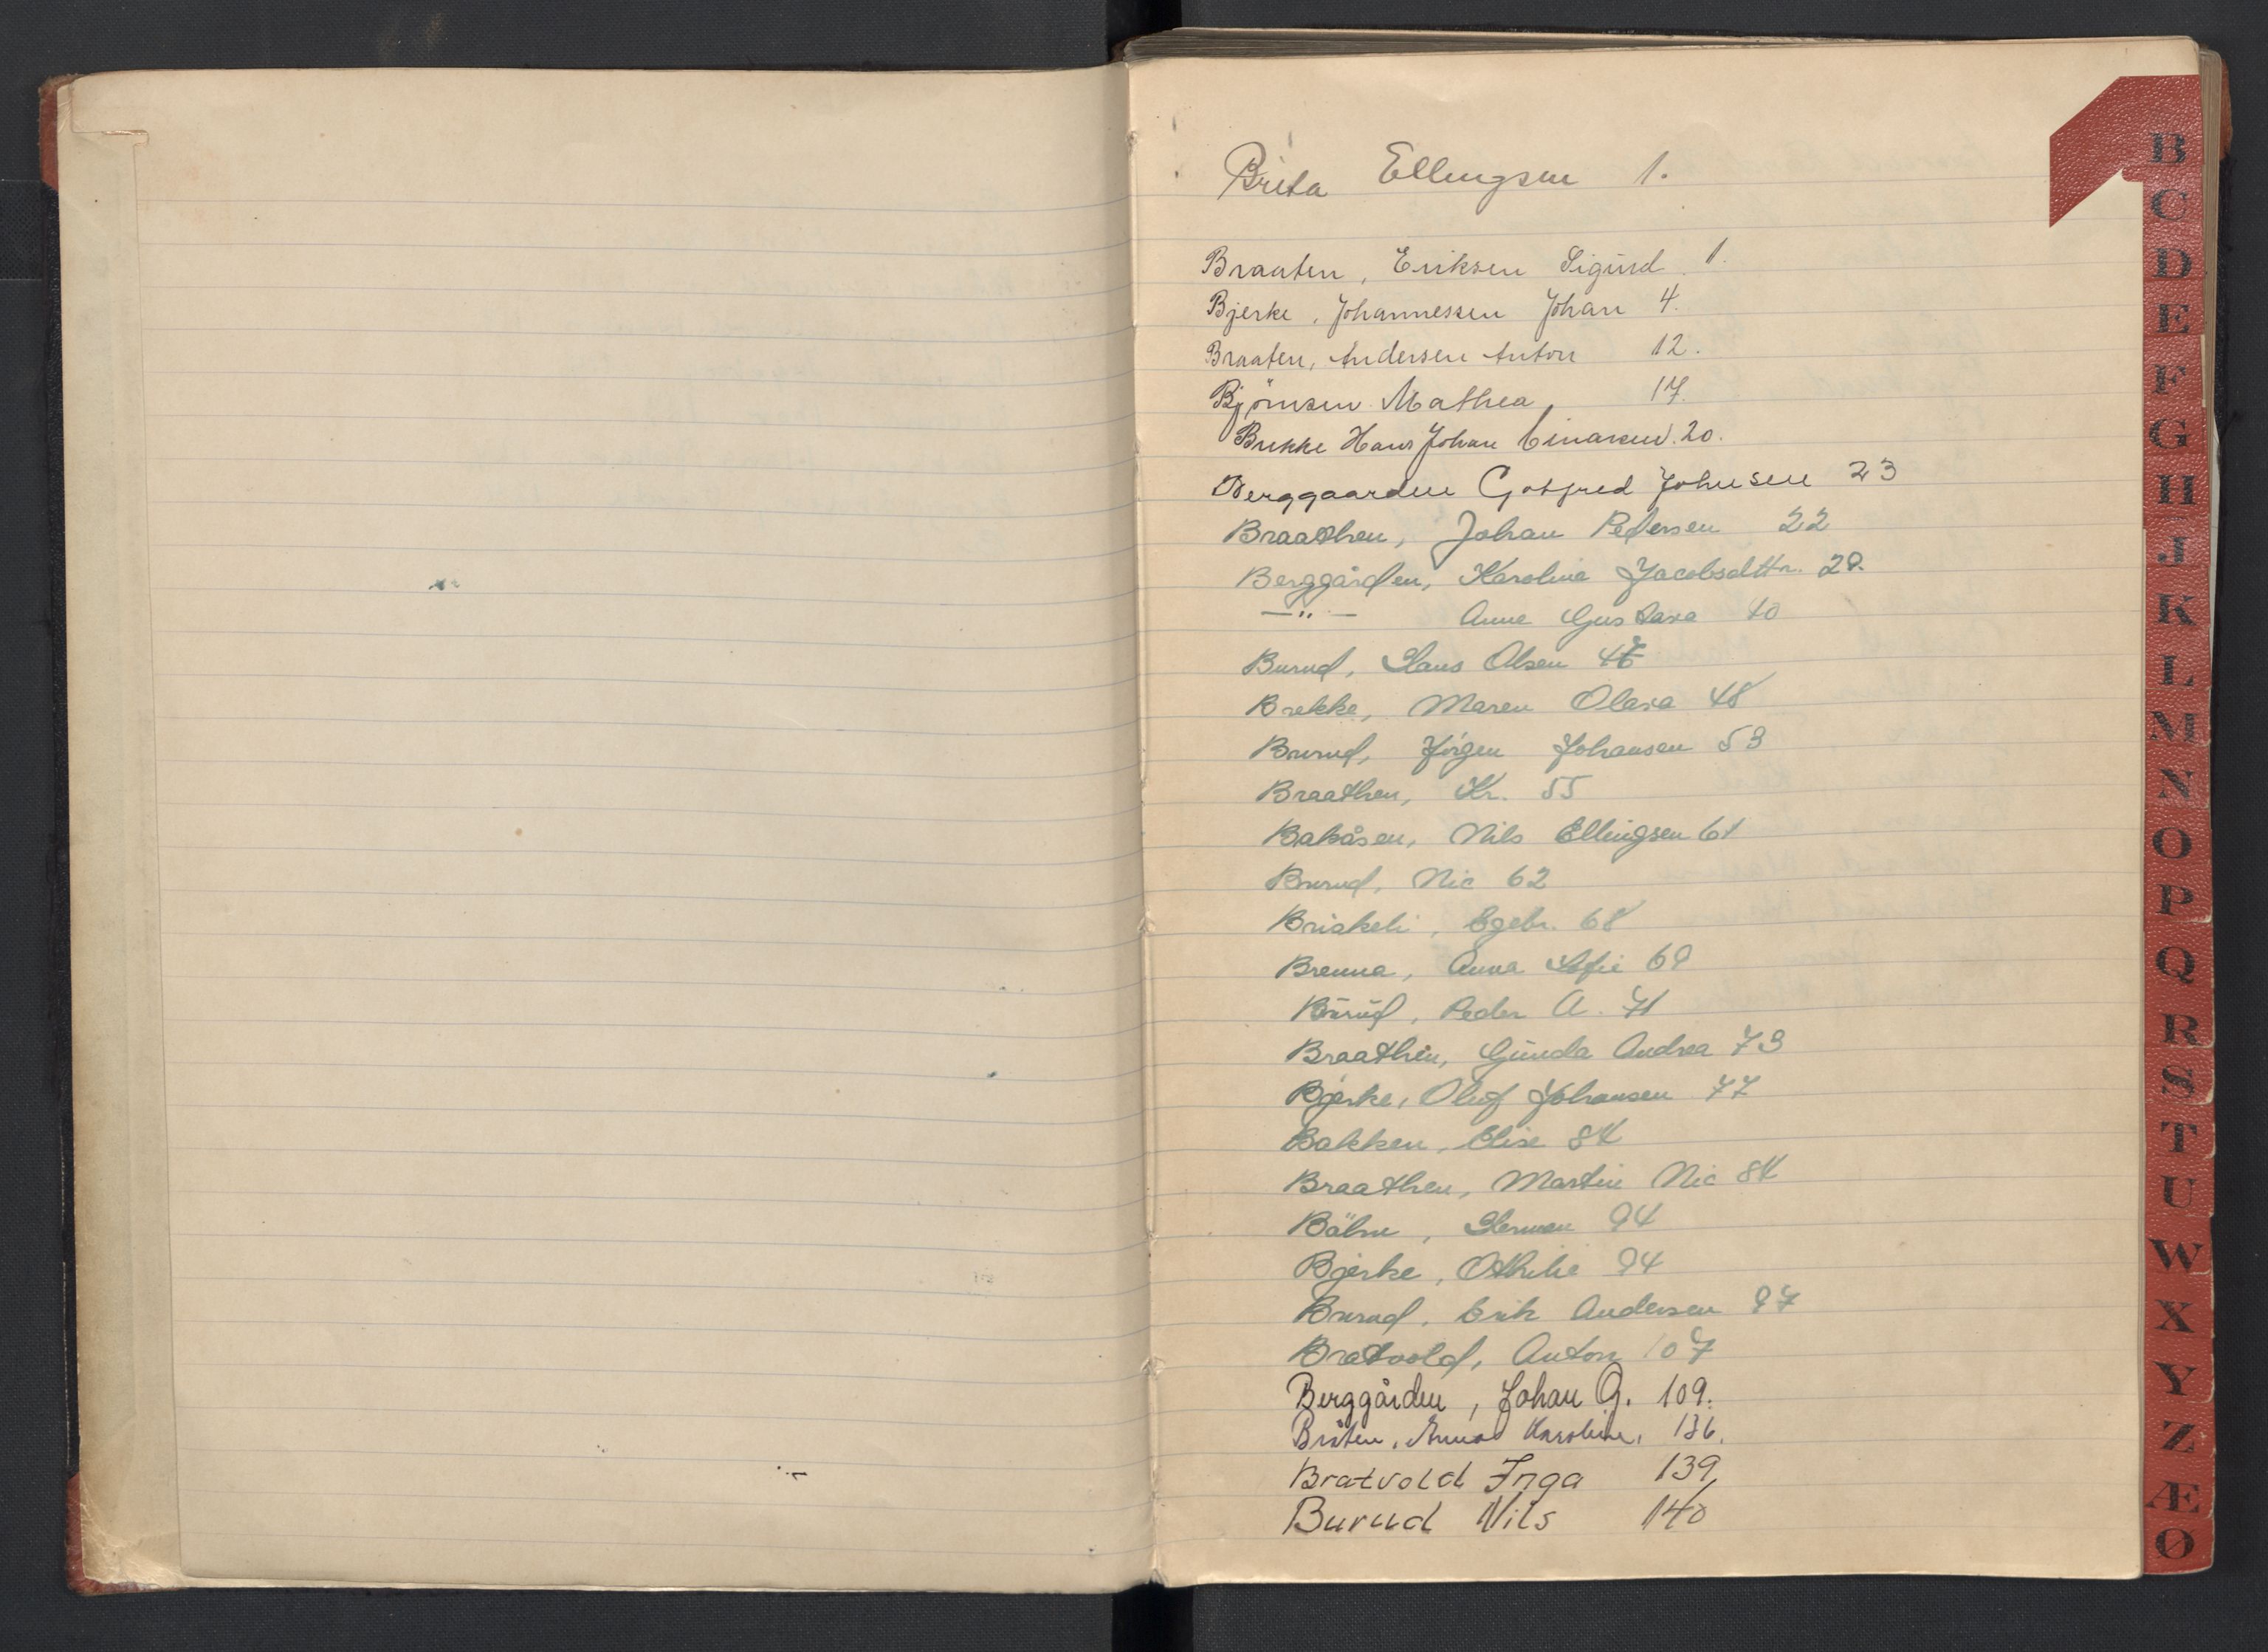 Brita Ellingsen 1.
Braaten, Eriksen Sigurd. 1.
Bjerke, Johannessen Johan 4.
Braaten, Andersen Anton 12.
Bjørnsen Mathea, 17.
Brekke Hans Johan Einarsen. 20.
Berggaarden Gotfred Johnsen 23
Braathen, Johan Pedersen 22
Berggården, Karolina Jacobsdttr. 29.
—"— Anne Gustava 40
Burud, Hans Olsen
Brekke, Maren Olava 48
Burud, Jörgen Johansen 53
Braathen, Kr. 55
Bakåsen, Nils Ellingsen 61
Burud, Nic 62
Briskeli, Egebr. 68
Brenna, Anna Sofie 69
Burud, Peder A. 71
Braathen, Gunda Andrea 73
Bjerke, Oluf Johansen 77
Bakken, Elise 84
Braathen, Martin Nic 84
Herman 94
Bjerke, Othilie 94
Burud, Erik Andersen 97
Bratvold, Anton 107
Berggården, Johan G. 109.
Bråten, Anna Karoline, 136.
Bratvold Inga 139
Burud Nils 140
B
C
D
E
F
G
H
J
K
L
M
N
O
P
Q
R
S
T
U
W
X
Y
Z
Æ
Ø